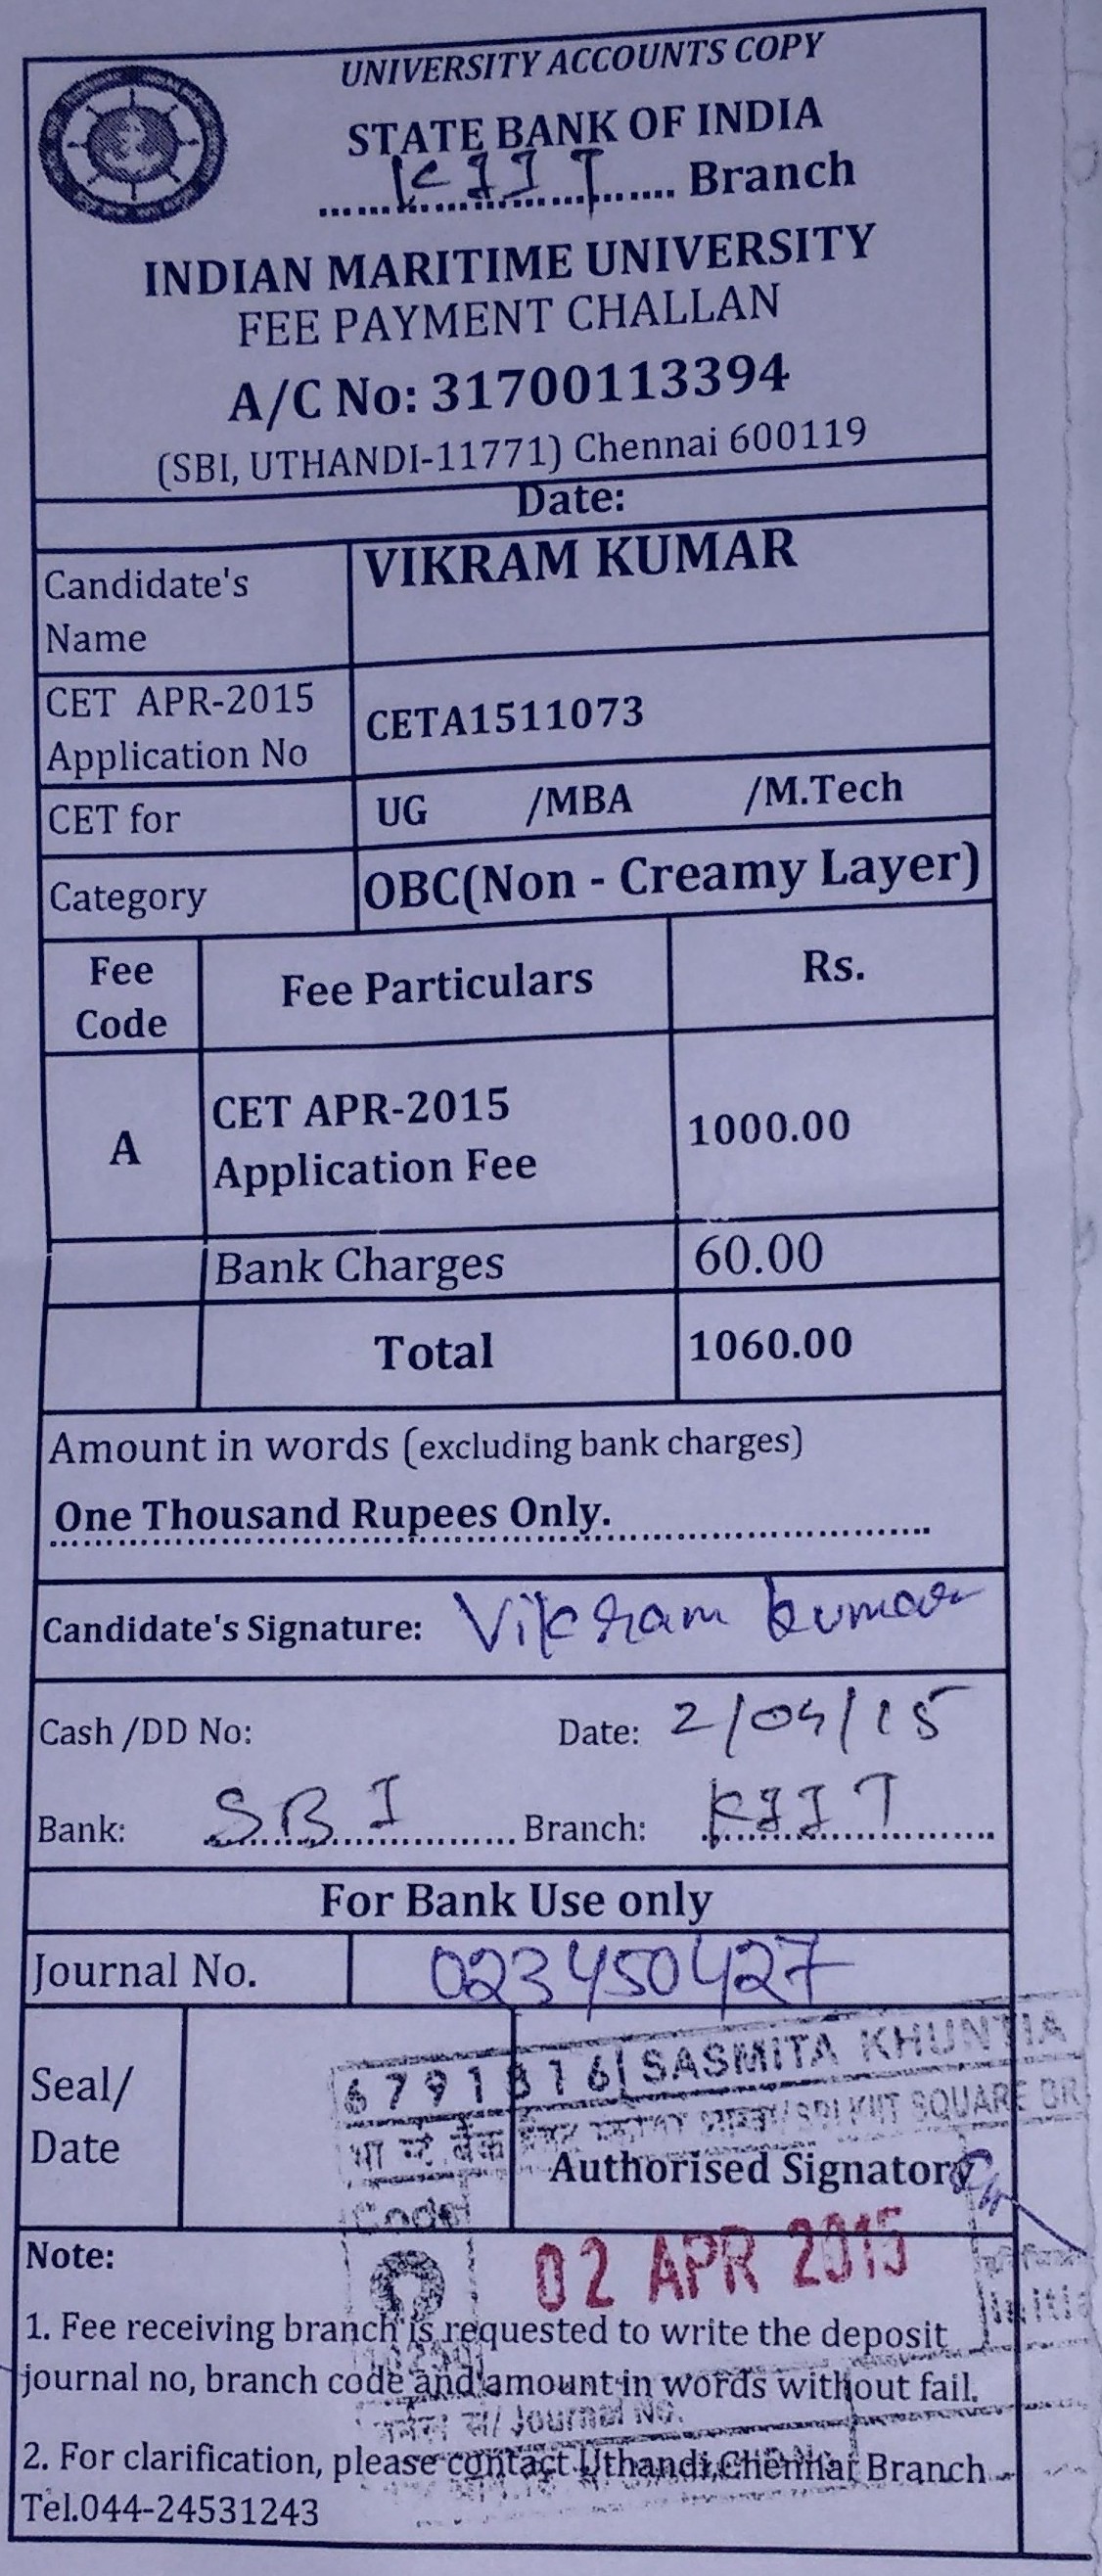 UNIVERSITY ACCOUNTS COPY
STATE BANK OF INDIA
KIIT Branch
INDIAN MARITIME UNIVERSITY
FEE PAYMENT CHALLAN
A/C No: 31700113394
(SBI, UTHANDI-11771) Chennai 600119
Date:
Candidate's Name VIKRAM KUMAR
CET APR-2015 Application No CETA1511073
CET for UG /MBA /M.Tech
Category OBC(Non - Creamy Layer)
Fee Code Fee Particulars Rs.
A CET APR-2015 Application Fee 1000.00
Bank Charges 60.00
Total 1060.00
Amount in words (excluding bank charges)
One Thousand Rupees Only.
Candidate's Signature: Vikram kumar
Cash /DD No: Date: 2/04/15
Bank: SBI Branch: KIIT
For Bank Use only
Journal No. 023450427
Seal/ Date
6791816 SASMITA KHUNTIA
SBI KIIT SQUARE BR
Authorised Signatory
Code
02 APR 2015
Note:
1. Fee receiving branch is requested to write the deposit
journal no, branch code and amount in words without fail.
Journal No.
2. For clarification, please contact Uthandi,Chennai Branch
Tel.044-24531243